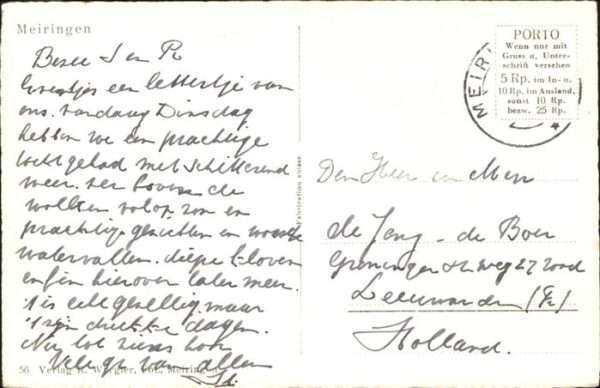 Meiringen
Beste J en R
Eventjes een lettertje van
ons. Vandaag Dinsdag
hebben we een prachtige
tocht gehad met schitterend
weer. ver boven de
wolken volop zon en
prachtige gezichten en woeste
watervallen. diepe kloven
enfin hierover later meer.
't is echt gezellig maar
't zijn drukke dagen.
Nu tot ziens hoor
Vele gr van allen
PORTO
Wenn nur mit
Gruss u. Unter-
schrift versehen
5 Rp. im In- u.
10 Rp. im Ausland,
sonst 10 Rp.
bezw. 25 Rp.
MEIRI
Fabrication suisse
Den Heer en Mevr
de Jong - de Boer
Groninger str weg 27 rood
Leeuwarden (Fr)
Holland.
56 Verlag